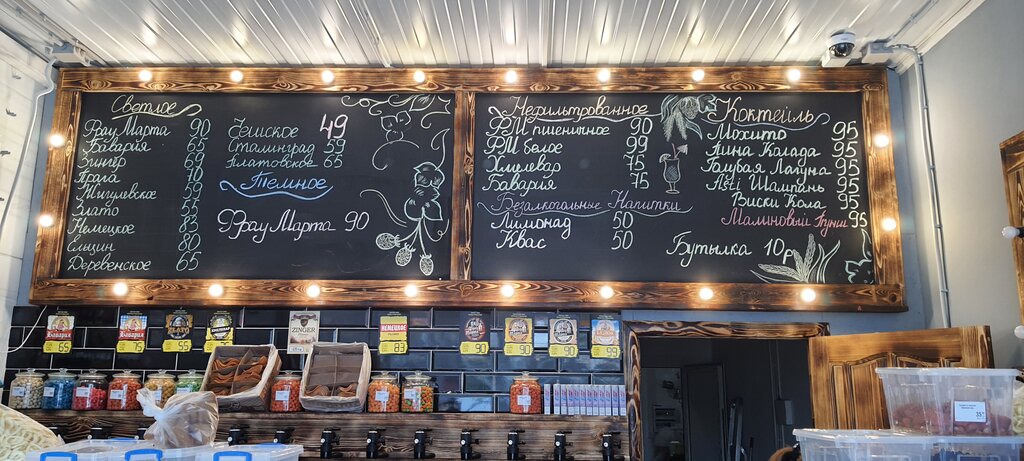 Светлое
Фрау Марта 90
Бавария 65
Зингер 69
Прага 70
Жигулевское 59
Злато 55
Немецкое 83
Ельцин 80
Деревенское 65
Чешское 49
Сталинград 59
Платовское 65
Темное
Фрау Марта 90
Нефильтрованное
ФМ пшеничное 90
ФМ белое 99
Хмелевар 75
Бавария 75
Безалкогольные Напитки
Лимонад 50
Квас 50
Коктейль
Мохито 95
Пина Колада 95
Голубая Лагуна 95
Asti Шампань 95
Виски Кола 95
Малиновый Пунш 95
Бутылка 10
Бавария
65
Бавария
75
55
ZINGER
НЕМЕЦКОЕ
83
90
90
90
99